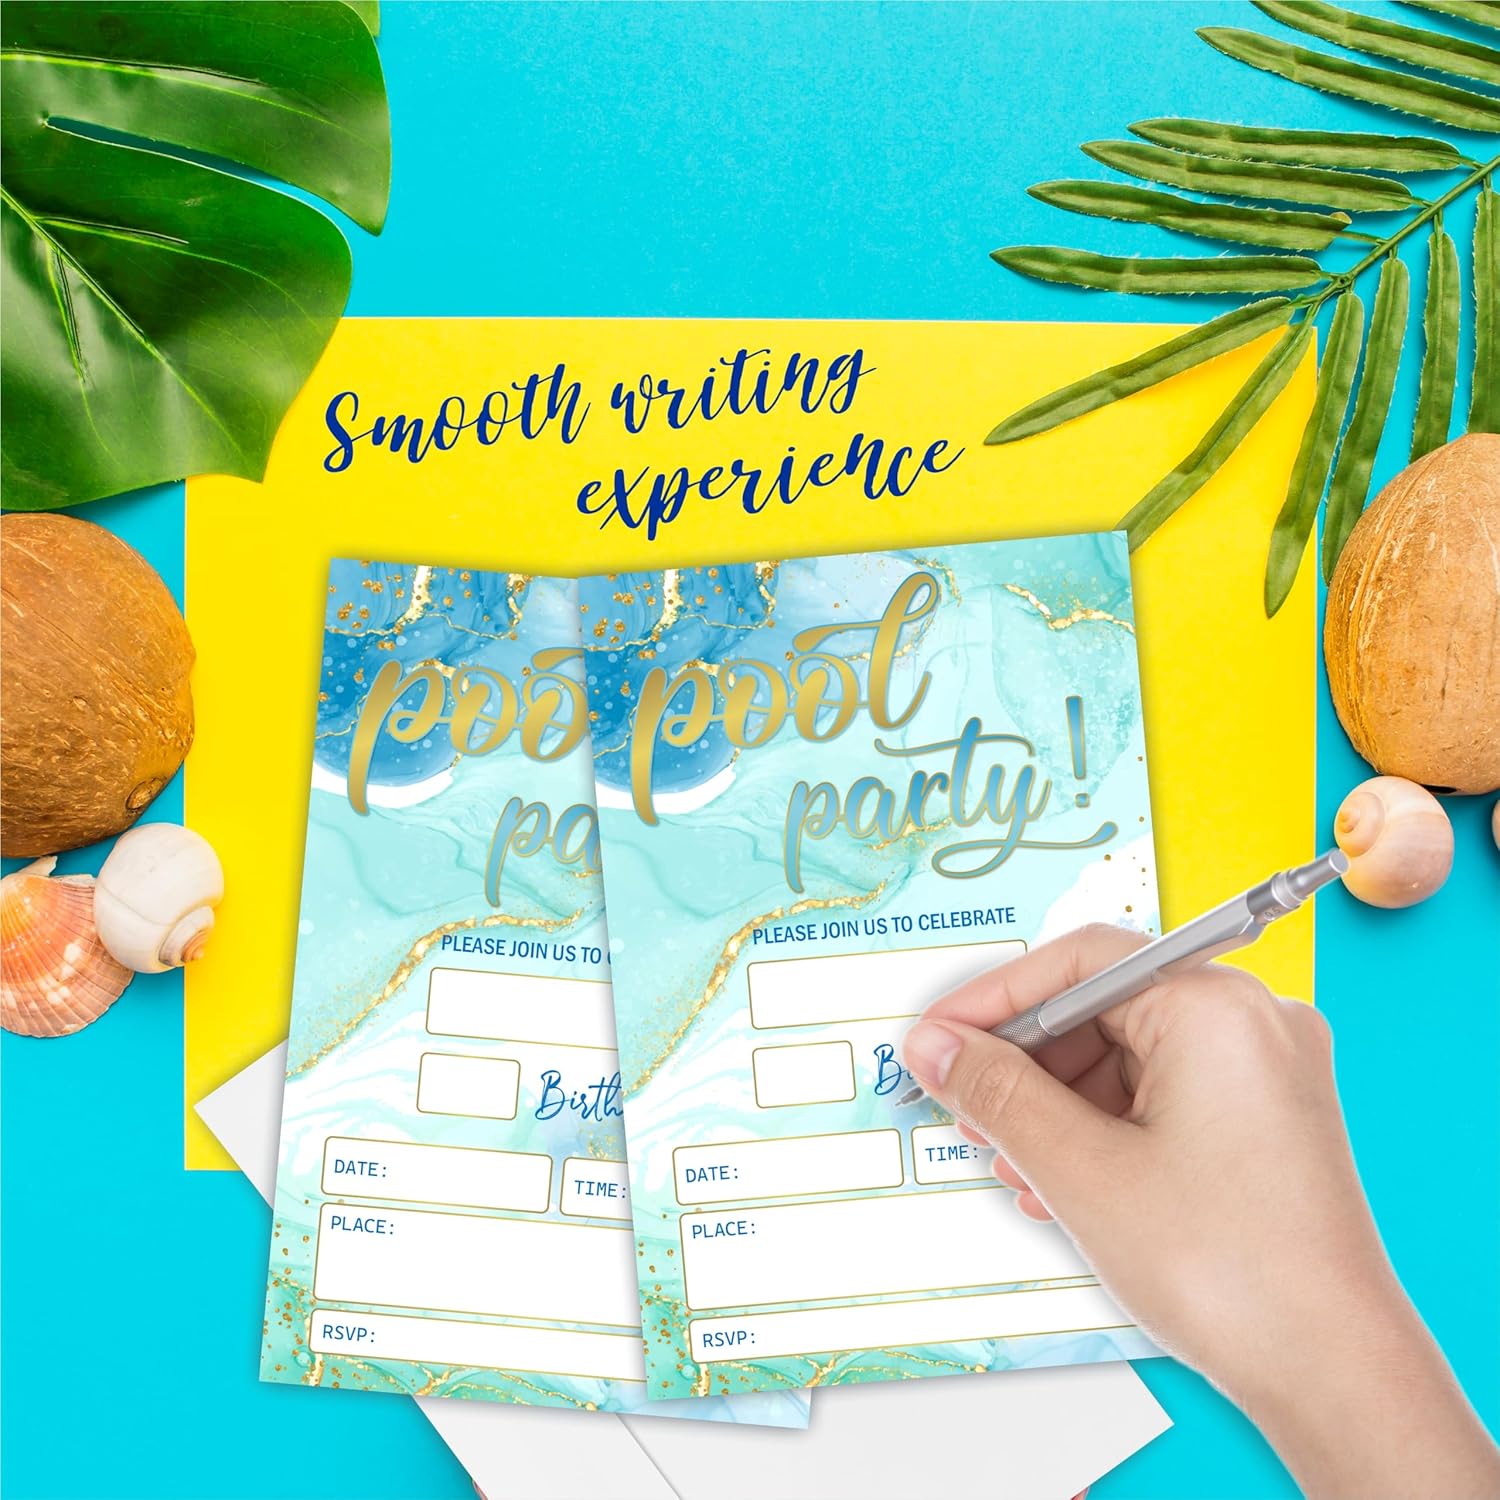 Smooth writing
experience
poo
pa
PLEASE JOIN US TO
Birth
DATE:
TIME:
PLACE:
RSVP:
pool
party!
PLEASE JOIN US TO CELEBRATE
DATE:
TIME:
PLACE:
RSVP: